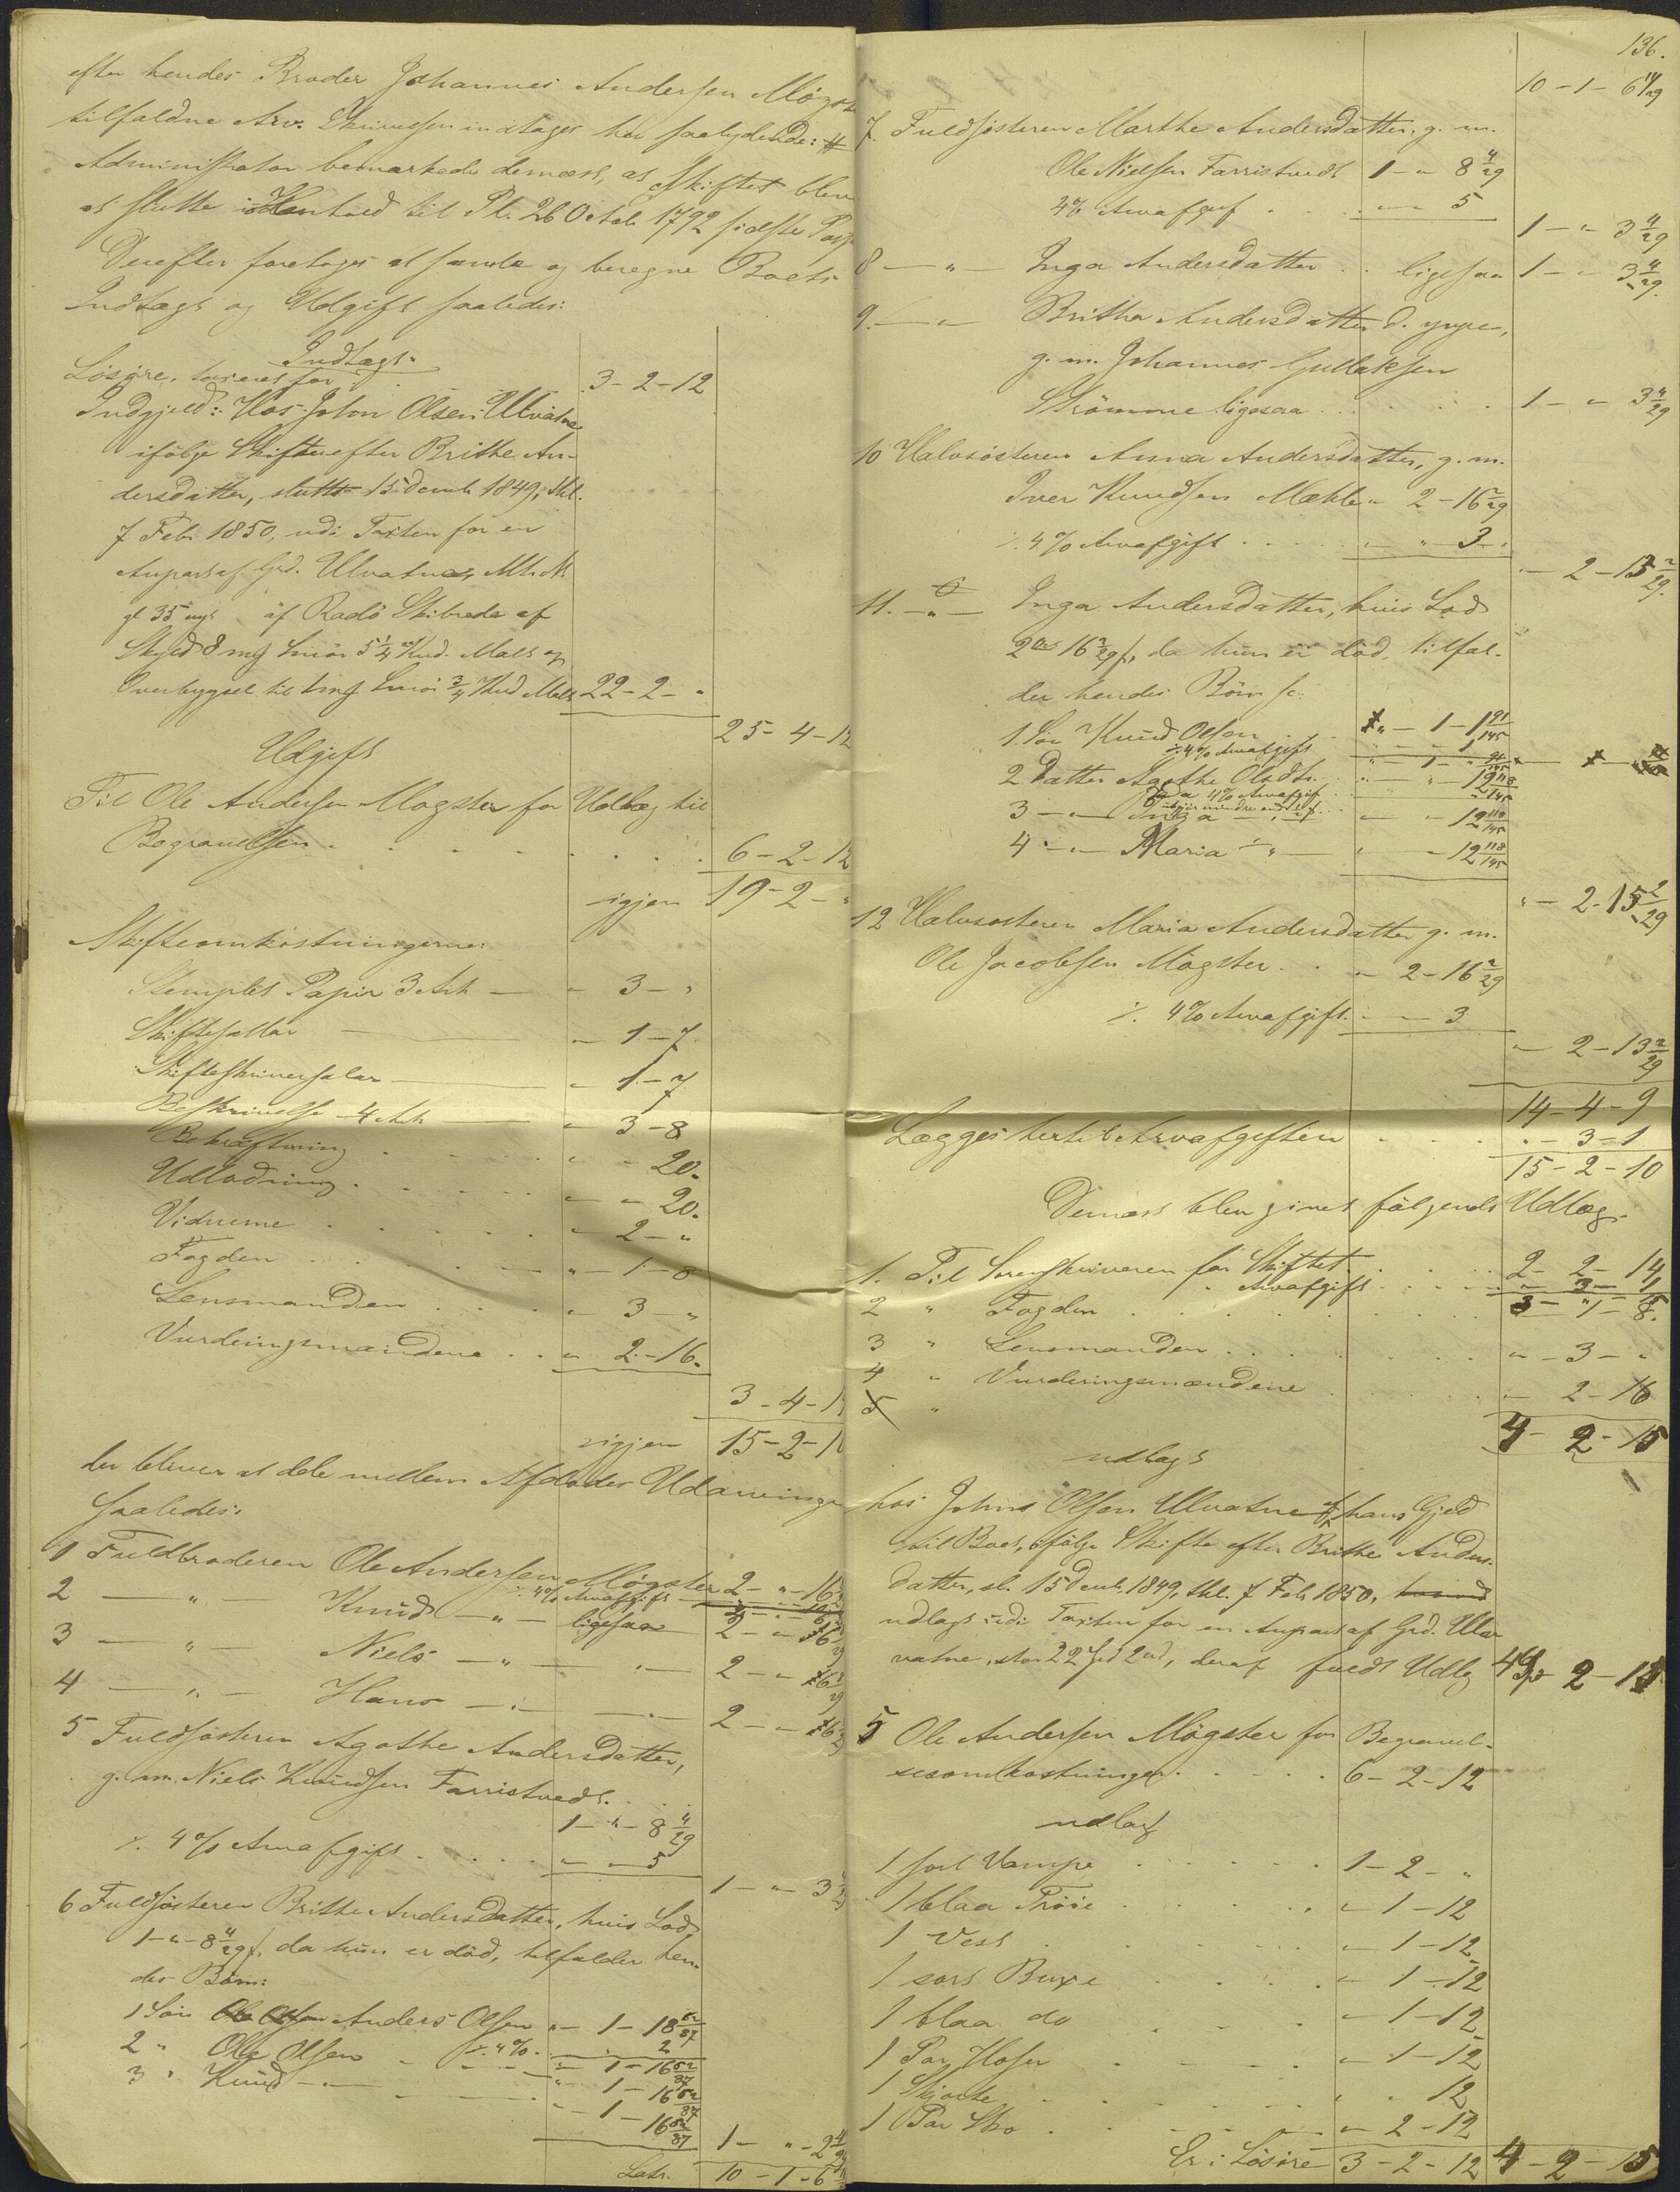 efter hendes Broder Johannes Andersen Møgster
tilfaldne Arv. Skrivelsen indtages her saalydende: #
Administrator bemærkede dernæst, at Skiftet blev
at slutte i Henhold til Pl. 26 Octob. 1792 sidste Post
Derefter foretoges at samle og beregne Boets
Indtægt og Udgift saaledes:
Indtægt.
Løsøre, taxeret for 3-2-12
Indgjeld: Hos John Olsen Ulvatne
ifølge Skifte efter Brithe An-
dersdatter, sluttet 15 Decemb. 1849, thl.
7 Feb. 1850, udi Taxten for en
Anpart af Grd. Ulvatne, Mt. No
gl 35 nyt af Radö Skibrede af
Skyld 8 mk Smör 5 1/4 Kd. Malt og
Overbygsel til 1 mk Smör 3/4 Hud Malt 22-2-"
25-4-12
Udgift
Til Ole Andersen Møgster for Udlæg til
Begravelsen . . . . 6-2-12
igjen 19-2-"
Skifteomkostningerne:
Stemplet Papir 3 Ark — " 3-"
Skiftesallar — " 1-7
Skifteskriversalar — " 1-7
Beskrivelse 4 Ark — " 3-8
Bekræftning . . . " " 20.
Udlodning . . . " " 20.
Vidnerne . . . " 2-"
Fogden . . . " 1-8
Lensmanden . . . " 3-"
Vurderingsmændene . . " 2-16.
3-4-1
igjen 15-2-10
der bliver at dele mellem Afdødes Udarvinger
saaledes:
1 Fuldbroderen Ole Andersen Møgster 2-"-16
÷ 4% Arvafgift
2 — " — Knud — " — ligesaa 2-"-6
3 — " — Niels — " — " — 2-"-6
4 — " — Hans — " — " — 2-"-6
5 Fuldsøsteren Agathe Andersdatter,
g. m. Niels Knudsen Farristvedt. . . .
1-"-8 4/29
÷ 4% Arvafgift . . . . " " 5
1-"-3
6 Fuldsøsteren Brithe Andersdatter, hvis Lod
1-"-8 4/29 ß, da hun er död, tilfalder hen-
des Børn:
1 Søn Anders Olsen "-1-18 52/87
÷ 4% . " " 2
"-1-16 52/87
2 " Ole Olsen . . "-1-16 52/87
3 " Knud — " — "-1-16 52/87
1-"-2 4/29
Latr. 10-1-6
136.
10-1-6 14/29
7. Fuldsøsteren Marthe Andersdatter, g. m.
Ole Nielsen Farristvedt 1-" 8 4/29
4% Arvafgift . . . " " 5
1-"-3 4/29
8 — " — Inga Andersdatter . . ligesaa 1-"-3 4/29.
9. — " — Britha Andersdatter d. yngre,
g. m. Johannes Gullaksen
Strömme ligesaa . . . . 1-"-3 4/29
10 Halvsøsteren Anna Andersdatter, g. m.
Iver Knudsen Mækle " 2-16 2/29
÷ 4% Arvafgift . . . . " " 3 "
"-2-13 2/29.
11. — " — Inga Andersdatter, hvis Lod
2 Ort 16 2/29 ß, da hun er död, tilfal-
der hendes Börn sc:
1. Sön Knud Olsen " - 1-1 91/145
÷ 4% Arvafgift " " 1
" - 1 - " 91/145
2 Datter Agathe Olsdtr. . " " 12 118/145
Da 4% Arvafgift
udgjör mindre end 1 ß.
3 — " — Inga — " — . . " - " 12 118/145
4 — " — Maria — " — " - " 12 118/145
"-2-15 2/29
12 Halvsøsteren Maria Andersdatter g. m.
Ole Jacobsen Møgster . . " 2-16 2/29
÷ 4% Arvafgift. " " 3
"-2-13 2/29
14-4-9
Lægges hertil Arvafgiften . . . . "-3-1
15-2-10
Dernæst blev givet følgende Udlæg.
1. Til Sorenskriveren for Skiftet . . . 2-2-14
" Arvafgift . . . . "-3-1
2 " Fogden . . . . . "-1-8.
3 " Lensmanden . . . . "-3-"
4 " Vurderingsmændene . . . "-2-16
4-2-15
udlagt
hos John Olsen Ulvatne af hans Gjeld
til Boet, ifölge Skifte efter Brithe Anders-
datter, sl. 15 Decmb. 1849, thl. 7 Feb. 1850,
udlagt udi Taxten for en Anpart af Grd. Ul-
vatne, stor 22 Spd 2 ort, deraf fuldt Udlæg 4 Spd 2-15
5 Ole Andersen Møgster for Begravel-
sesomkostninger . . . . 6-2-12
udlagt
1 sort Vampe . . . . 1-2-"
1 blaa Tröie . . . . "-1-12
1 Vest . . . . "-1-12
1 sort Buxe . . . . "-1-12
1 blaa do . . . "-1-12
1 Par Hoser . . . . "-1-12
1 Skjorte . . . . " " 12
1 Par Sko . . . . "-2-12
Er i Løsøre 3-2-12 4-2-15